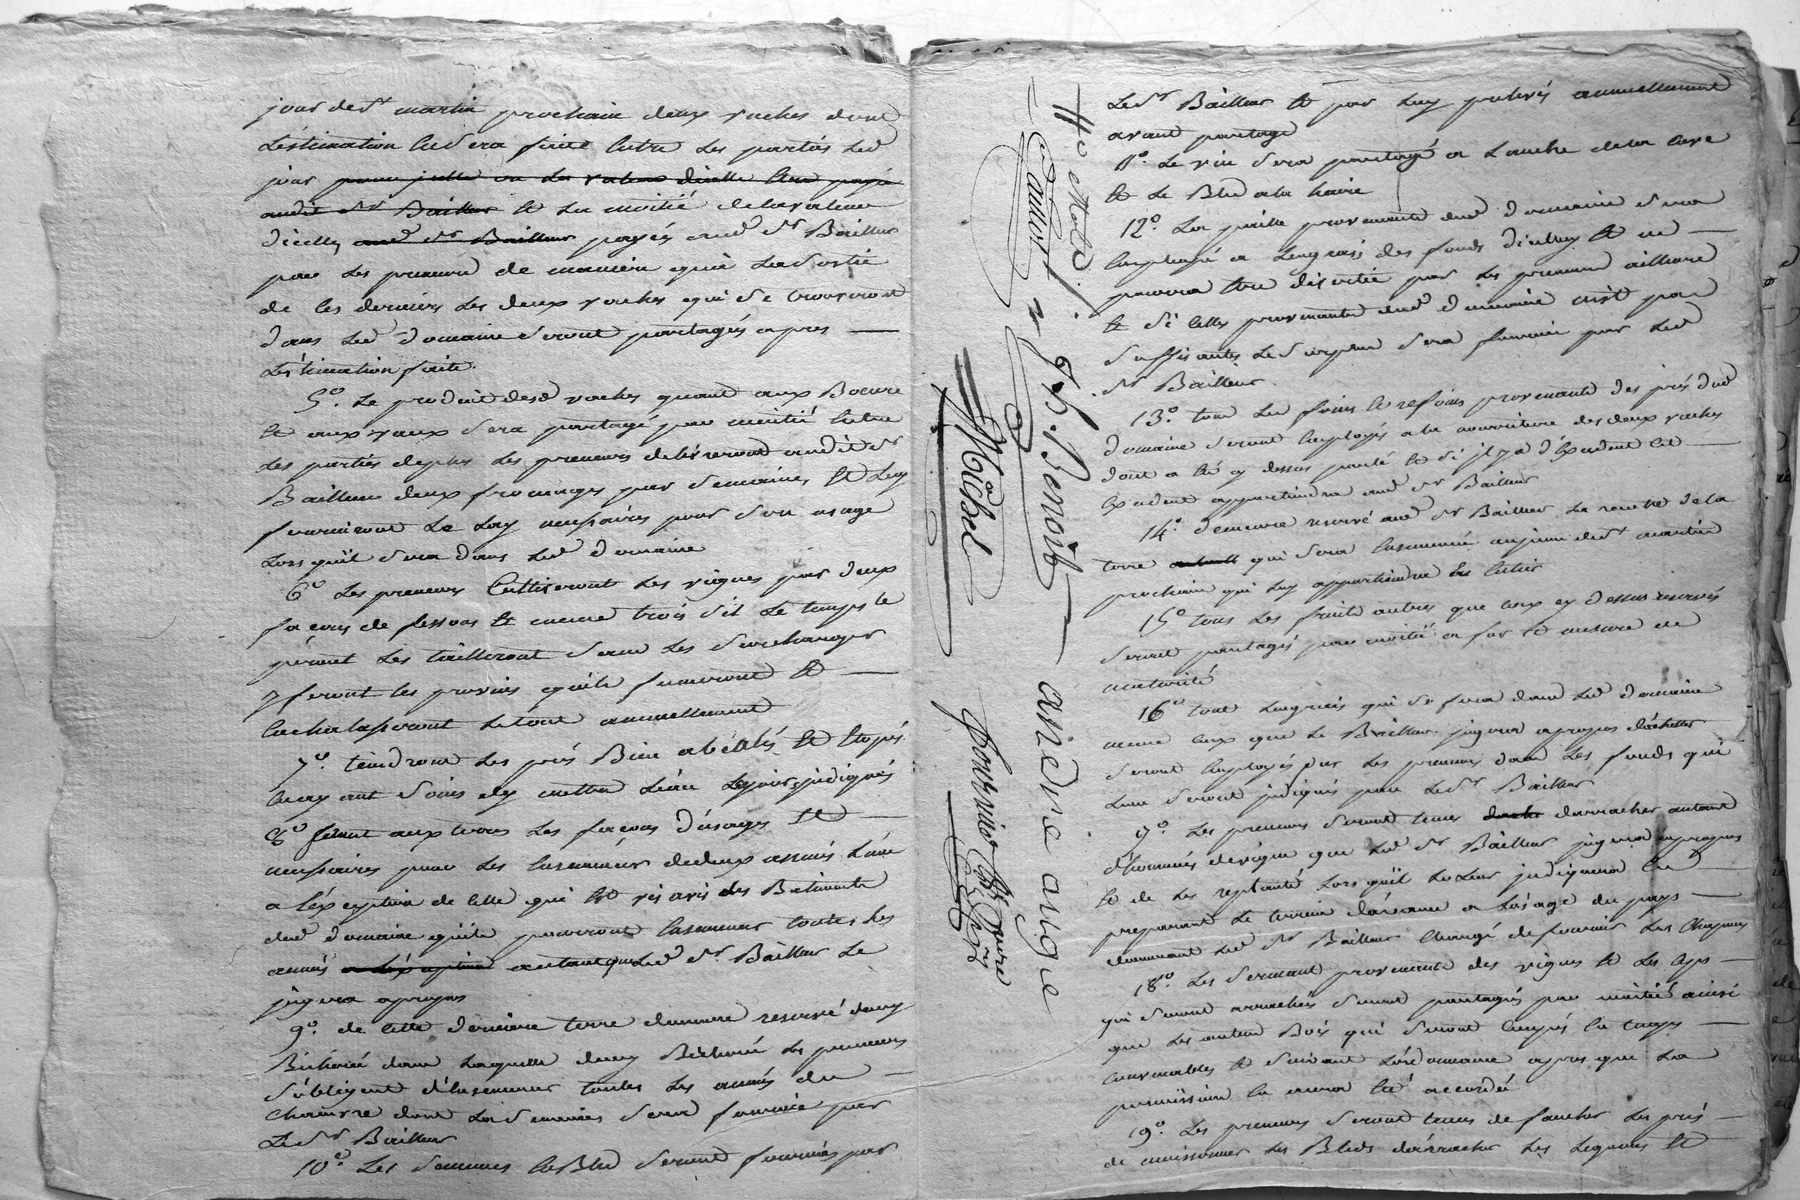 jour de st martin prochain deux vaches dont
l'éstimation en Sera faite Entre Les partiés Led
jour pour juelle ou La valeur dicelle Etre payé
audit sr Bailleur Et La moitié de la valeur
d'icelles aud sr Bailleur payés aud sr Bailleur
par Les preneurs de manière qu'a La Sortie
de Ces derniérs Les deux vaches qui Se trouveront
dans Led domaine Seront partagés apres
L'éstimation faite.
5o. Le produit desd vaches quant aux Beurre
Et aux veaux Sera partagé par moitié Entre
Les partiés de plus Les preneurs délivreront audit sr
Bailleur deux fromages par Semaine, Et Luy
fourniront Le Lay necessaire pour Son usage
Lors quil Sera dans Led domaine
6o Les preneurs Cultiveront Les vignes par deux
façons de fessous Et meme trois S'il Le temps le
pérmet Les tailleront Sans Les Surcharger
y feront les provins qu'ils fumeront Et
Echalasseront Le tout annuellement
7o. tiendront Les prés Bien abéalés Et Etopés
En ayant Soins d'y mettre L'eau Les jours judiqués
8o feront aux terres Les façons d'usages Et
necessaires pour Les Ensemencer de deux années L'une
a L'éxception de Celle qui Est vis avis des Batiments
dud domaine qu'ils pourront Ensemencer toutes Les
années a L'éxception autant que Led sr Bailleur Le
jugera apropos
9o. de Cette derniere terre demeure reservé deux
Bicherée dans Laquelle deux Bicherée Les preneurs
S'obligent d'Ensemencer toutes Les années du
Chanvre dont La Semences Sera fournie par
Le Sr Bailleur
10o. Les Semences En Bled Seront fournies par
Le Sr Bailleur Et par Luy prelevés annuellement
avant partage
11o. Le vin Sera partagé a L'anche de la Cuve
Et Le Bled a la haire
12o. La paille provenante dud domaine Sera
Employé a L'engrais des fonds d'icelluy Et ne
pourra Etre divertie par Les preneurs ailleurs
Et Si Celles provenante dud domaine n'est pas
Suffisantes Le Surplus Sera fournie par Led
Sr Bailleur
13o. tous Les foins Et refoins provenants des prés dud
domaine Seront Employés a la nourriture des deux vaches
dont a Eté cy dessus parlé Et S'il y a d'Exedent Cet
Exedent appartiendra aud Sr Bailleur
14o. demeure reservé aud Sr Bailleur La rente de la
terre qui Sera Ensemencé au jour de St martin
prochain qui Luy appartiendra En Entier
15o tous Les fruits autres que Ceux cy dessus reservés
Seront partagés par moitié a fur Et mesure de
maturité
16o tout L'engrais qui Se fera dans Led domaine
meme Ceux que Le Bailleur jugera apropos d'acheter
Seront Employés par Les preneurs dans Les fonds qui
Leur Seront judiqués par Le Sr Bailleur
17o. Les preneurs Seront tenus d'arracher autant
d'hommés de vigne que Led Sr Bailleur jugera apropos
Et de Les replanté Lors quil Le Leur judiquera En
preparant Le terrein d'avance a L'usage du pays
demeurant Led Sr Bailleur Chargé de fournir Les Chapons
18o. Les Serment provenants des vignes Et Les Ceps
qui Seront arrachés Seront partagés par moitié ainsi
que Les autres Bois qui Seront Coupés En temps
Convenables Et Suivant L'ordonnance apres que La
permission En aura Eté accordée
19o. Les preneurs Seront tenus de faucher Les prés
de moissonner Les Bleds d'arracher Les Legumes Et
Benoit
Michel
andré augé